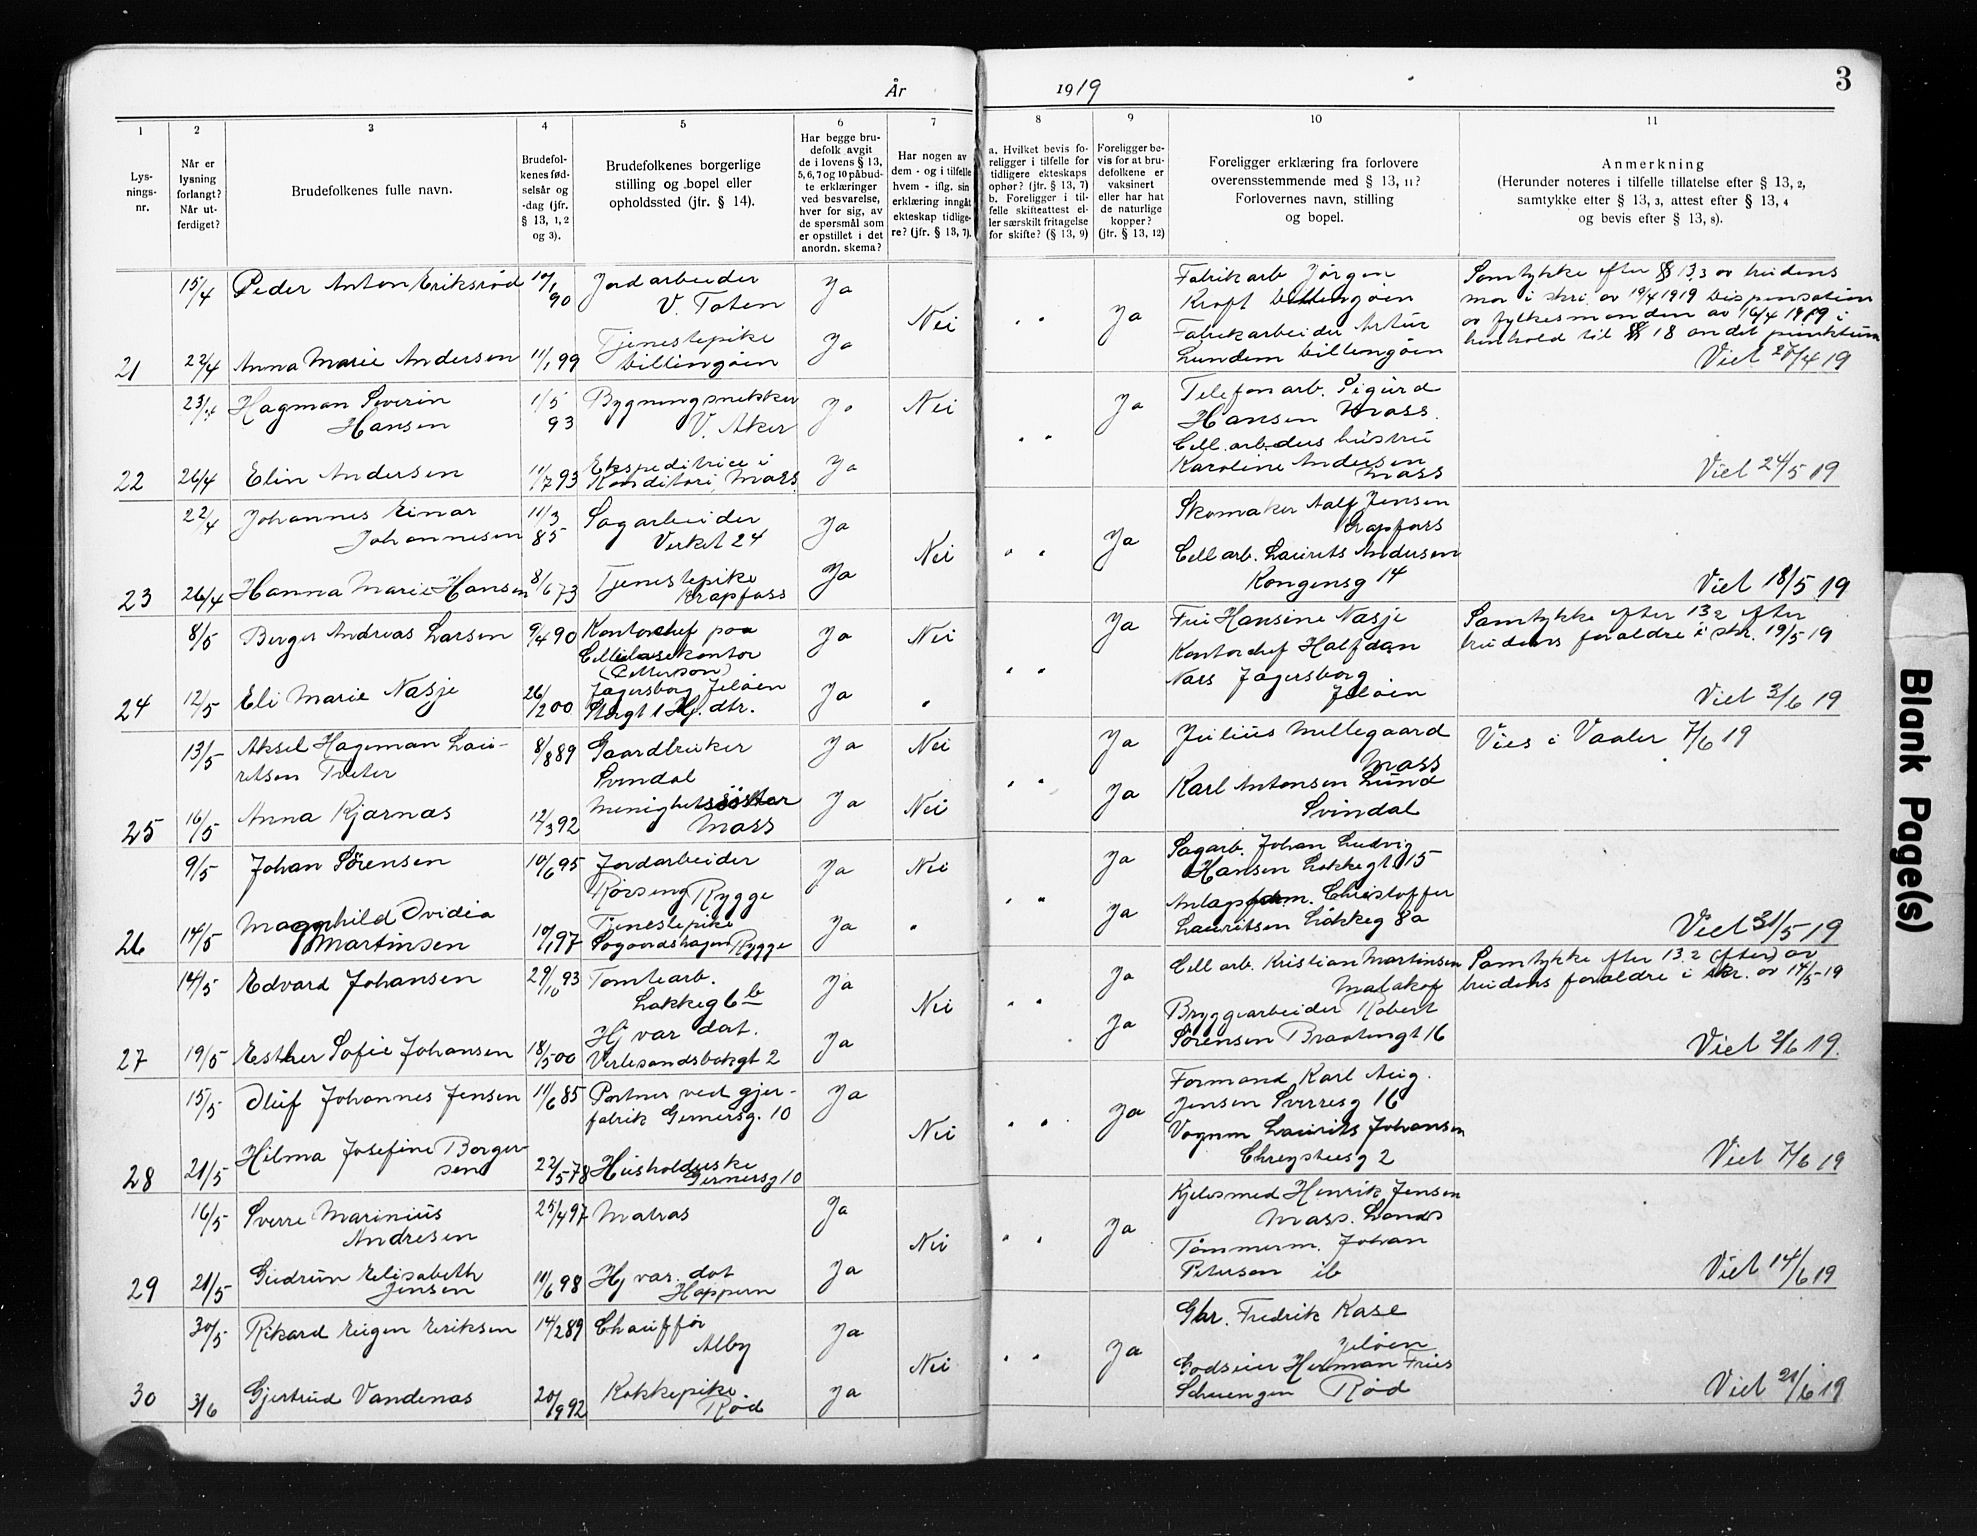 År 1919
3
1 2 3 4 5 6 7 8 9 10 11
Lys-
nings-
nr.
Når er
lysning
forlangt?
Når ut-
ferdiget?
Brudefolkenes fulle navn.
Brudefol-
kenes fød-
selsår og
-dag (jfr.
§ 13, 1, 2
og 3).
Brudefolkenes borgerlige
stilling og bopel eller
opholdssted (jfr. § 14).
Har begge bru-
defolk avgit
de i lovens § 13,
5, 6, 7 og 10 påbud-
te erklæringer
ved besvarelse,
hver for sig, av
de spørsmål som
er opstillet i det
anordn. skema?
Har nogen av
dem - og i tilfelle
hvem - iflg. sin
erklæring inngåt
ekteskap tidlige-
re? (jfr. § 13, 7).
a. Hvilket bevis fo-
religger i tilfelle for
tidligere ekteskaps
ophør? (jfr. § 13, 7)
b. Foreligger i til-
felle skifteattest el-
ler særskilt fritagelse
for skifte? (§ 13, 9)
Foreligger be-
vis for at bru-
defolkene er
vaksinert
eller har hat
de naturlige
kopper?
(jfr. § 13, 12)
Foreligger erklæring fra forlovere
overensstemmende med § 13, 11?
Forlovernes navn, stilling
og bopel.
Anmerkning
(Herunder noteres i tilfelle tillatelse efter § 13, 2,
samtykke efter § 13, 3, attest efter § 13, 4
og bevis efter § 13, 8).
21
15/4 Peder Anton Eriksrød 10/1 90
Jordarbeider
V. Toten
Ja
22/4 Anna Marie Andersen 11/1 99
Tjenestepike
Billingøen
Ja
Nei
" "
Ja
Fabrikarb Jørgen
Kroft Billingøen
Fabrikarbeider Artur
Lundem Billingøen
Samtykke efter § 13,3 av brudens
mor i skri. av 10/4 1919 Dispensation
av fylkesmanden av 16/4 1919 i
henhold til § 18 andet punktum
Viet 27/4 19
22
23/4 Hagman Severin
Hansen
1/5 93
Bygningsnekker
V. Aker
Ja
Nei
26/4 Elin Andersen 11/7 93
Ekspeditrice i
Konditori, Moss
Ja
" "
Ja
Telefonarb. Sigurd
Hansen Moss.
Cell. arbeders hustru
Karoline Andersen
Moss
Viet 24/5 19
23
22/4 Johannes Einar
Johannesen
11/3 85
Sagarbeider
Verket 24
Ja
26/4 Hanna Marie Hansen 8/6 73
Tjenestepike
Krapfoss
Ja
Nei
" "
Ja
Skomaker Aalf Jensen
Krapfoss
Cell arb. Laurits Andersen
Kongensg 14
Viet 18/5 19
24
8/5 Berger Andreas Larsen 9/4 90
Kontorchef paa
Cellulosekontor
(Petterson)
Ja
Nei
12/5 Eli Marie Nasje 26/2 00
Jagersborg Jeløen
Storgt 1 Hj. dtr.
Ja
"
" "
Ja
Fru Hansine Nasje
Kontorchef Halfdan
Nars Jagersborg
Jeløen
Samtykke efter 13 2 efter
brudens foraldre i skr. 19/5 19
Viet 3/6 19
25
13/5 Aksel Hageman Lau-
ritsen Tveter
8/8 89
Gaardbruker
Svindal
Ja
Nei
16/5 Anna Kjærnæs 12/3 92
Menighetssöster
Moss
Ja
Nei
" "
Ja
Ja
Julius Mellegaard
Moss
Karl Antonsen Lund
Svindal
Vies i Vaaler 7/6 19
26
9/5 Johan Sörensen 10/6 95
Jordarbeider
Rörseng Rygge
Ja
Nei
14/5 Magnhild Ovidia
Martinsen
10/1 97
Tjenestepike
Rygge
Ja
"
" "
Ja
Ja
Sagarb. Johan Ludvig
Hansen Lökkegt. 15
Christoffer
Lauritsen Lökkeg 8a
Viet 31/5 19
27
14/5 Edvard Johansen 29/10 93
Tomtearb.
Lökkeg 6 b
Ja
19/5 Esther Sofie Johansen 18/5 00
Hj var dat.
Verlesandsbakgt 2
Ja
Nei
" "
Ja
Ja
Cell arb. Kristian Martinsen
Malakof
Bryggearbeider Robert
Sörensen Braatengt 16
Samtykke efter 13.2 (efter) av
brudens foraldre i skr. av 14/5-19
Viet 2/6 19.
28
15/5 Oluf Johannes Jensen 11/6 85
Portner ved gjer-
fabrik Gernersg. 10
Ja
21/5 Hilma Josefine Borger
sen
22/5 78
Husholderske
Gernersg 10
Nei
" "
Ja
Formand Karl Aug.
Jensen Sverresg 16
Vognm Laurits Johansen
Chrystiesg 2
Viet 7/6 19
29
16/5 Sverre Marinius
Andresen
25/4 97
Matros
Ja
21/5 Gudrun Elisabeth
Jensen
11/6 98
Hj var. dat
Happern
Ja
Nei
" "
Ja
Kjelesmed Henrik Jensen
Moss. Lands
Tømmerm. Johan
Petersen ib
Viet 14/6 19
30
30/5 Rikard Eugen Eriksen 14/2 89
Chauffør
Alby
Ja
3/6 Gjertrud Vandenas 20/9 92
Kokkepike.
Rød
Ja
Nei
" "
Ja
Gbr. Fredrik Kase
Jeløen
Godseier Herman Fries
Schwengen Rød
Viet 21/6 19
Blank Page(s)